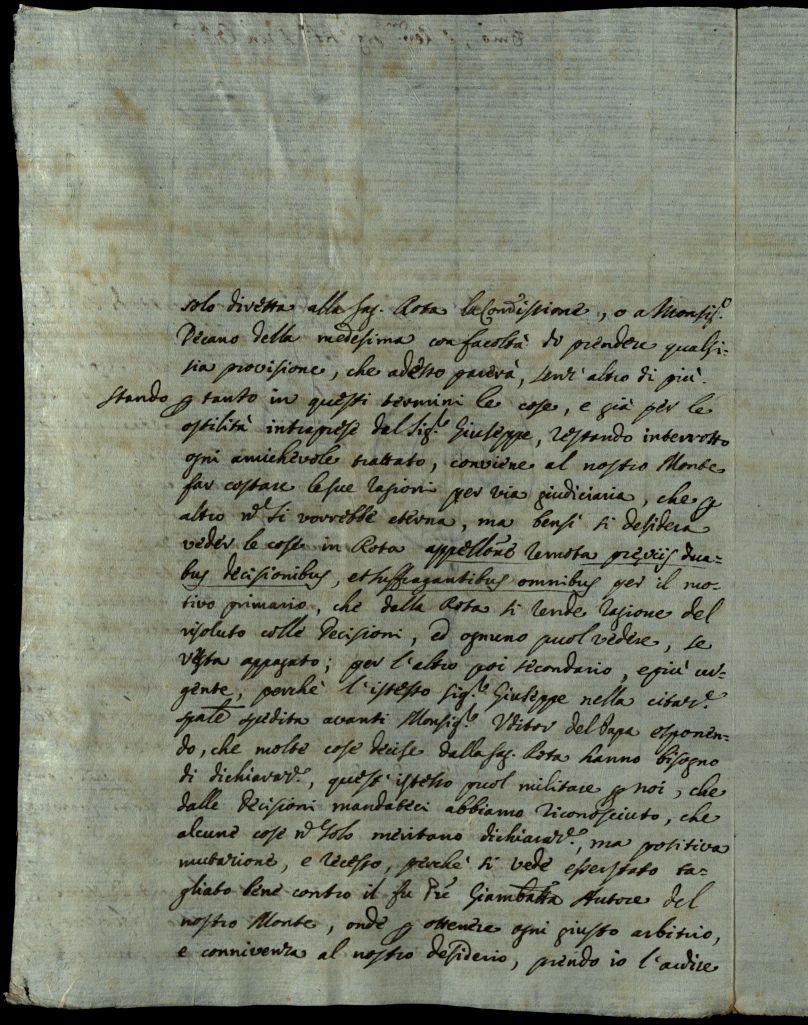 solo diretta alla Sag. Rota la Com̃issione, o a Monsig.r
Decano della medesima con facoltà di prendere qualsi-
sia provisione, che adesso parerà, senz' altro di più.
Stando p tanto in questi termini le cose, e già per le
ostilità intraprese dal Sig.r Giuseppe, restando interrotto
ogni amichevole trattato, conviene al nostro Monte
far costare le sue ragioni per via giudiciaria, che p
altro nõ si vorrebbe eterna, ma bensì si desidera
veder le cose in Rota appellõne remota previis dua-
bus decisionibus, et suffragantibus omnibus per il mo-
tivo primario, che dalla Rota si rende ragione del
risoluto colle Decisioni, ed ognuno puol vedere, se
resta appagato; per l'altro poi secondario, e più ur-
gente, perchè l'istesso Sig.r Giuseppe nella citaz.e
spedita avanti Monsig.r Uditor del Papa esponen-
do, che molte cose decise dalla Sag. Rota hanno bisogno
di dichiaraz.e, quest' istesso puol militare p noi, che
dalle Decisioni mandateci abbiamo riconosciuto, che
alcune cose nõ solo meritano dichiaraz.e, ma positiva
mutazione, e recesso, perchè si vede essersi stato ta-
gliato bene contro il fu Giambatta Autore del
nostro Monte, onde p ottenere ogni giusto arbitrio,
e connivenza al nostro desiderio, prendo io l'ardire